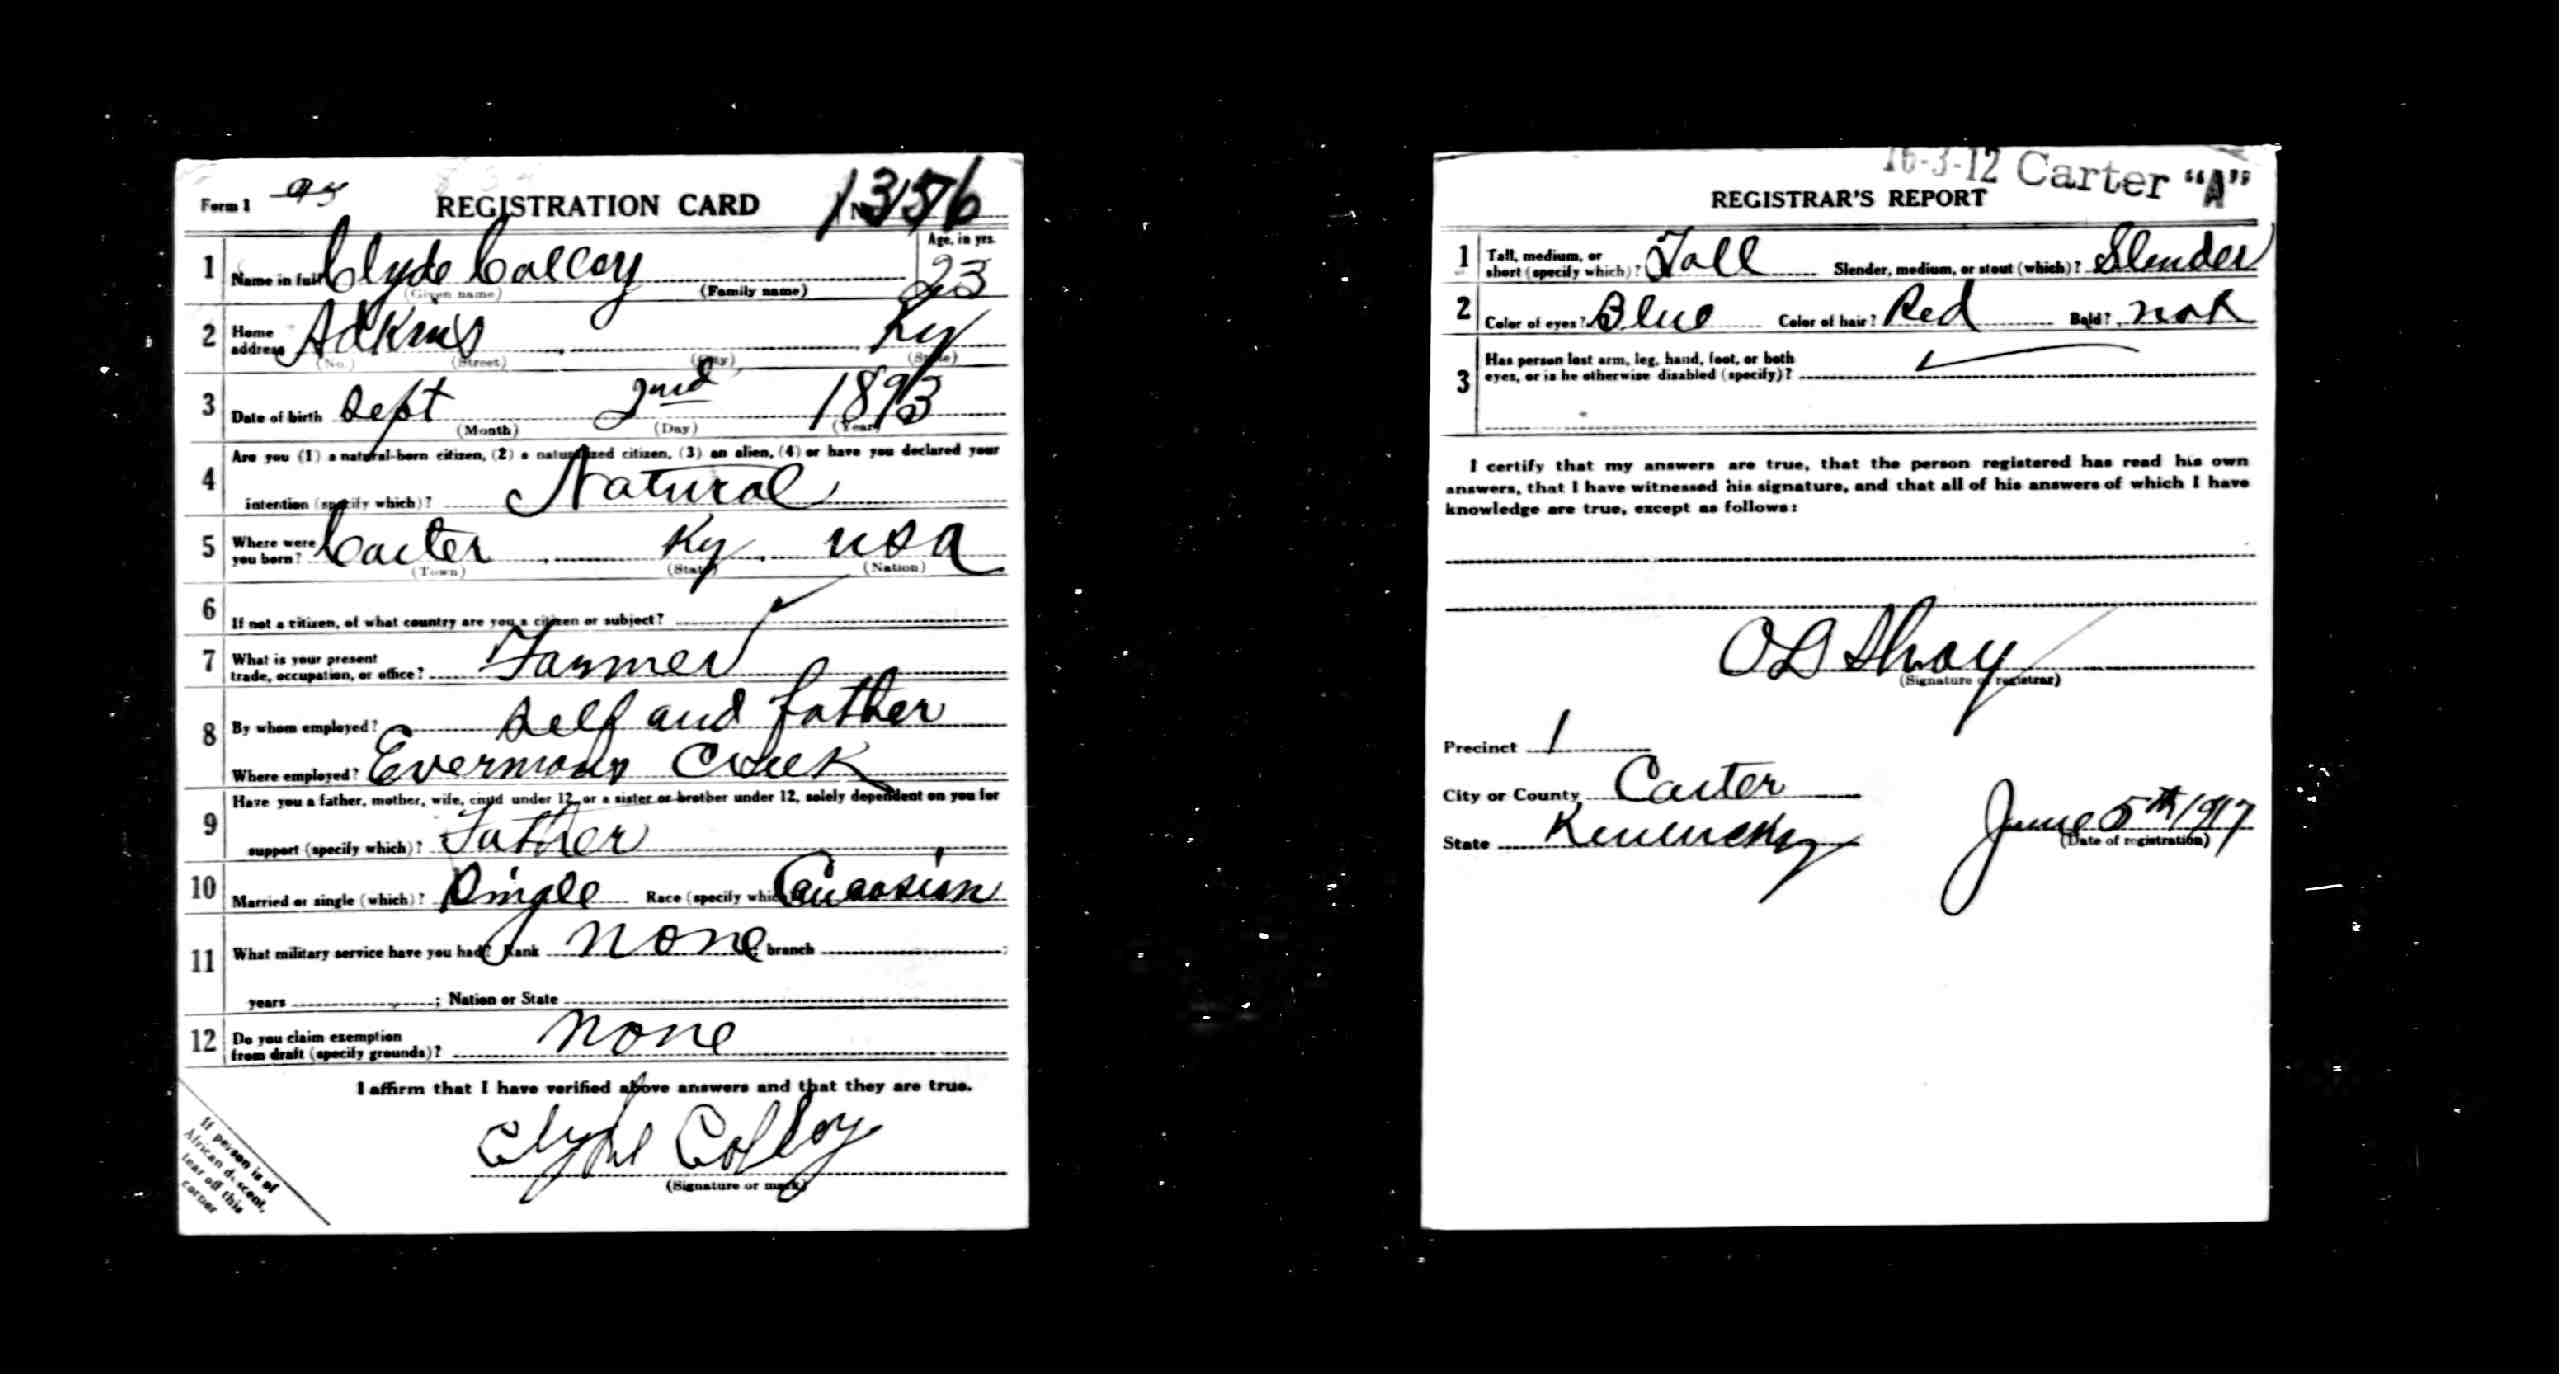 Form 1 93 REGISTRATION CARD No. 1356
1 Name in full Clyde Calloy Age, in yrs. 23
(Given name) (Family name)
2 Home address Adkins Ky
(No.) (Street) (City) (State)
3 Date of birth Sept 2nd 1893
(Month) (Day) (Year)
4 Are you (1) a natural-born citizen, (2) a naturalized citizen, (3) an alien, (4) or have you declared your
intention (specify which)? Natural
5 Where were you born? Carter Ky USA
(Town) (State) (Nation)
6 If not a citizen, of what country are you a citizen or subject?
7 What is your present trade, occupation, or office? Farmer
8 By whom employed? Self and father
Where employed? Evermans Creek
9 Have you a father, mother, wife, child under 12, or a sister or brother under 12, solely dependent on you for
support (specify which)? Father
10 Married or single (which)? Single Race (specify which)? Caucasian
11 What military service have you had? Rank none branch
years ; Nation or State
12 Do you claim exemption from draft (specify grounds)? none
I affirm that I have verified above answers and that they are true.
Clyde Colloy
(Signature or mark)
If person is of
African descent,
tear off this
corner
16-3-12 Carter "A"
REGISTRAR'S REPORT
1 Tall, medium, or short (specify which)? Tall Slender, medium, or stout (which)? Slender
2 Color of eyes? Blue Color of hair? Red Bald? not
3 Has person lost arm, leg, hand, foot, or both
eyes, or is he otherwise disabled (specify)?
I certify that my answers are true, that the person registered has read his own
answers, that I have witnessed his signature, and that all of his answers of which I have
knowledge are true, except as follows:
(Signature of registrar)
Precinct 1
City or County Carter
State Kentucky June 5th 1917
(Date of registration)